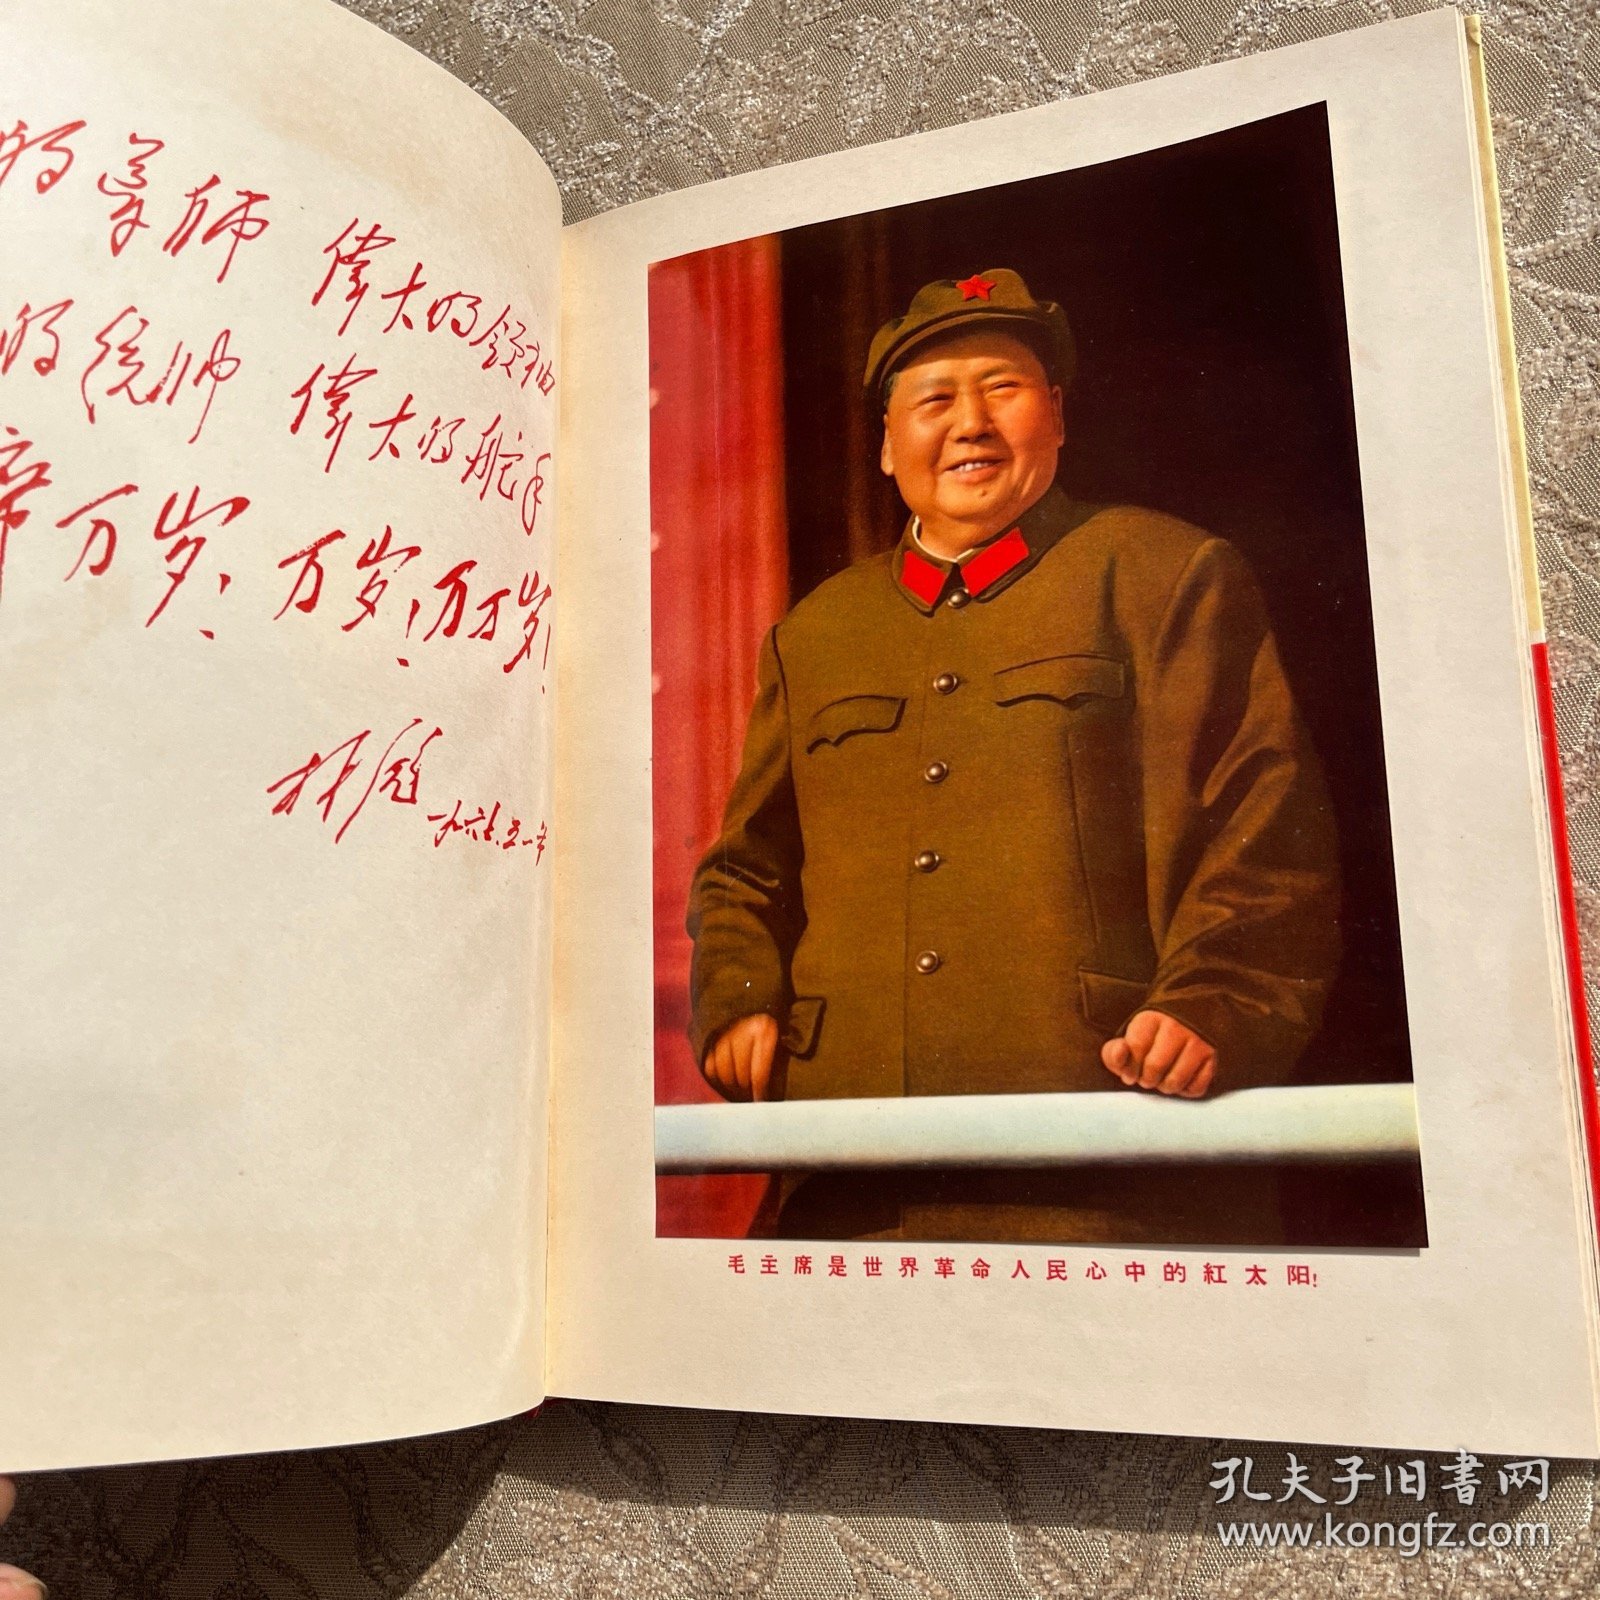 的导师 偉大的领袖
的统帅 偉大的舵手
席万岁！万岁！万万岁！
林彪
一九六七.五一节
毛主席是世界革命人民心中的紅太阳!
孔夫子旧書网
www.kongfz.com